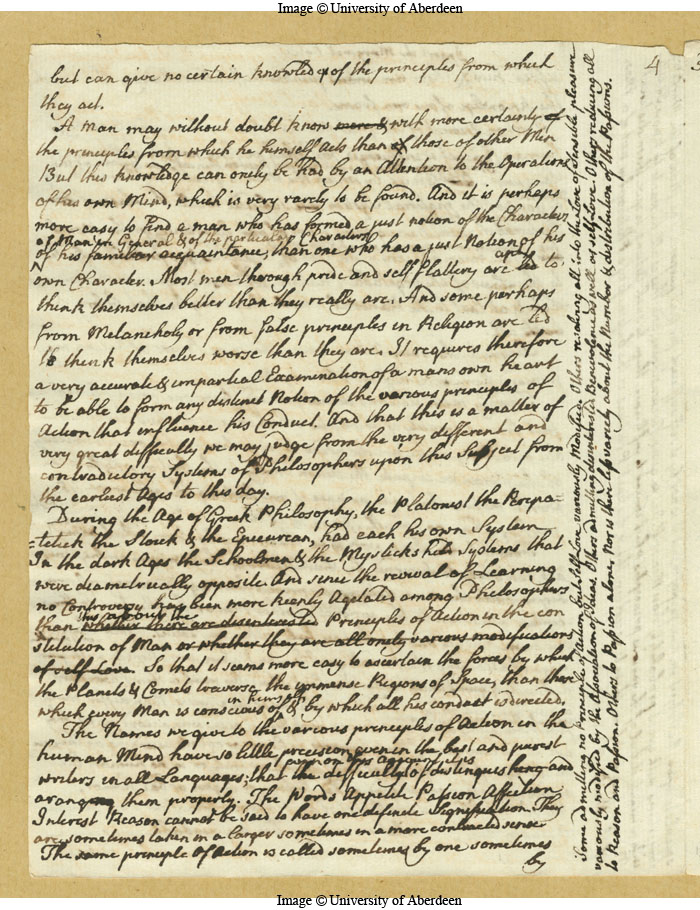 Image © University of Aberdeen
4
but can give no certain knowledg of the principles from which
they act.
A Man may without doubt know more & with more certainty of
the principles from which he himself acts than of those of other Men
But this knowledge can onely be had by an Attention to the Operations
of his own Mind, which is very rarely to be found. And it is perhaps
more easy to find a man who has formed a just notion of the Character
of Man in General & of the particular Characters
of his familiar acquaintance, than one who has a just Notion of his
own Character. Most men through pride and self flattery are apt to
think themselves better than they really are. And some perhaps
from Melancholy or from false principles in Religion are led
to think themselves worse than they are. It requires therefore
a very accurate & impartial Examination of a mans own heart
to be able to form any distinct Notion of the various principles of
Action that influence his Conduct. And that this is a matter of
very great difficulty we may judge from the very different and
contradictory Systems of Philosophers upon this Subject from
the earliest Ages to this day.
During the Age of Greek Philosophy, the Platonist the Peripa-
-tetick the Stoick & the Epicurean, had each his own System
In the dark Ages the Schoolmen & the Mysticks had Systems that
were diametrically opposite And since the revival of Learning
no Controversy has been more keenly Agetated among Philosophers
this about the
than whether there are disenterested Principles of Action in the con
stitution of Man or whether they are all onely various modifications
of self Love. So that it seems more easy to ascertain the forces by which
the Planets & Comets traverse the immense Regions of Space, than those
in himself
which every Man is conscious of & by which all his conduct is directed.
The Names we give to the various principles of Action in the
human Mind have so little precision even in the best and purest
writers in all Languages, that the difficulty of distinguishing and
arranging them properly. The Words Appetite Passion Affection
Interest Reason cannot be said to have one definite Signification. They
are sometimes taken in a larger sometimes in a more contracted sense
The same principle of Action is called sometimes by one sometimes
by
Some admitting no Principles of Action but self Love variously modified. Others resolving all into the Love of sensible pleasure
variously modified by the Association of Ideas. Others admitting disenterested Benevolence as well as self Love. Others reducing all
to Reason and Passion. Others to Passion alone, Nor is there less variety about the Number & distribution of the Passions.
Image © University of Aberdeen